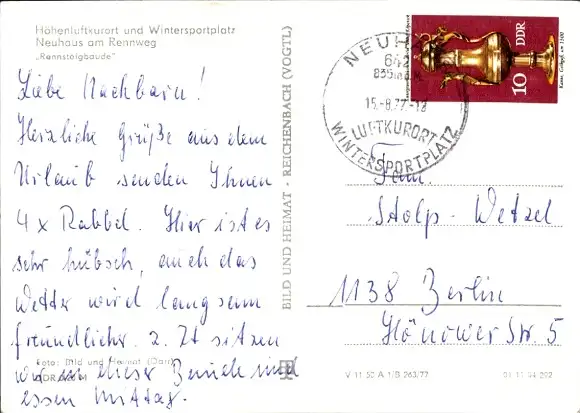 Höhenluftkurort und Wintersportplatz
Neuhaus am Rennweg
„Rennsteigbaude"
Liebe Nachbarn!
Herzliche Grüße aus dem
Urlaub senden Ihnen
4 x Rabbel. Hier ist es
sehr hübsch, auch das
Wetter wird langsam
freundlicher. z. Zt sitzen
wir in dieser Baude und
essen Mittag.
Foto: Bild und Heimat
BILD UND HEIMAT · REICHENBACH (VOGTL)
NEUH
642
835m
15.-8.77.-12
LUFTKURORT
WINTERSPORTPLATZ
10
DDR
Fam.
Stolp-Wetzel
1138 Berlin
Hönower Str. 5
V 11 50 A 1/B 263/77